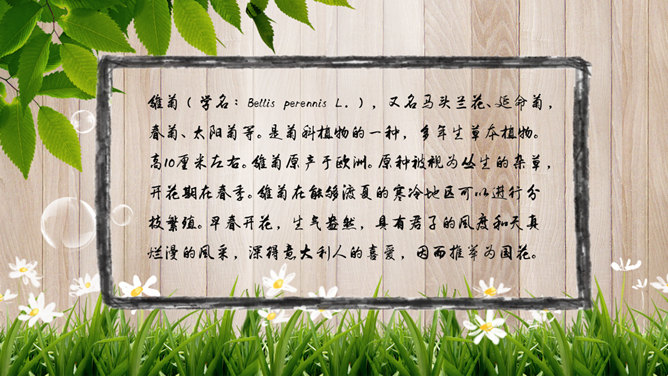 雏菊（学名：Bellis perennis L.），又名马头兰花、延命菊，
春菊、太阳菊等。是菊科植物的一种，多年生草本植物。
高10厘米左右。雏菊原产于欧洲。原种被视为丛生的杂草，
开花期在春季。雏菊在能够渡夏的寒冷地区可以进行分
枝繁殖。早春开花，生气盎然，具有君子的风度和天真
烂漫的风采，深得意大利人的喜爱，因而推举为国花。